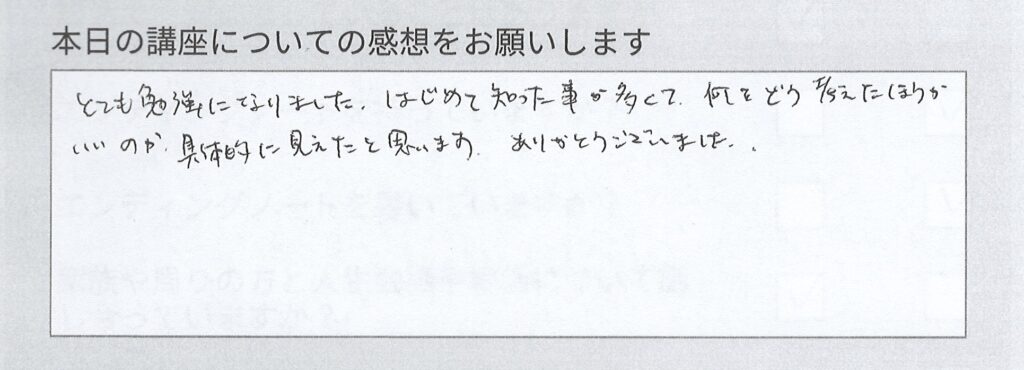 本日の講座についての感想をお願いします
とても勉強になりました。はじめて知った事が多くて、何をどう考えたほうが
いいのか、具体的に見えたと思います。ありがとうございました。